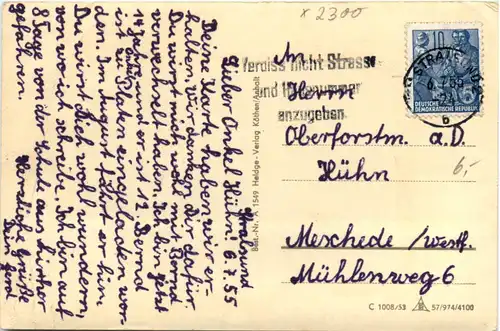 x 2300
Stralsund
6.7.55
Lieber Onkel Hühn!
Deine Karte haben wir er-
halten, wir danken Dir dafür.
Du wirst mich wohl mit Bernd
verwechselt haben. Ich bin jetzt
14 Jahre und er ist 12. Bernd
ist zu Platen eingeladen wor-
den. Im August fährt er hin.
Du wirst Dich wohl wundern,
von wo ich schreibe. Ich bin auf
8 Tage von der Schule aus hierher
gefahren.
Herzliche Grüße
Dein
Gerd
Best.-Nr. A 1549 Heldge-Verlag Köthen/Anhalt
Vergiss nicht Strasse
und Hausnummer
anzugeben
STRALSUND
6.7.55
b
10
DEUTSCHE
DEMOKRATISCHE REPUBLIK
An
Herrn
Oberforstm. a.D.
Hühn
6,-
Meschede /Westf.
Mühlenweg 6
C 1008/53 57/974/4100